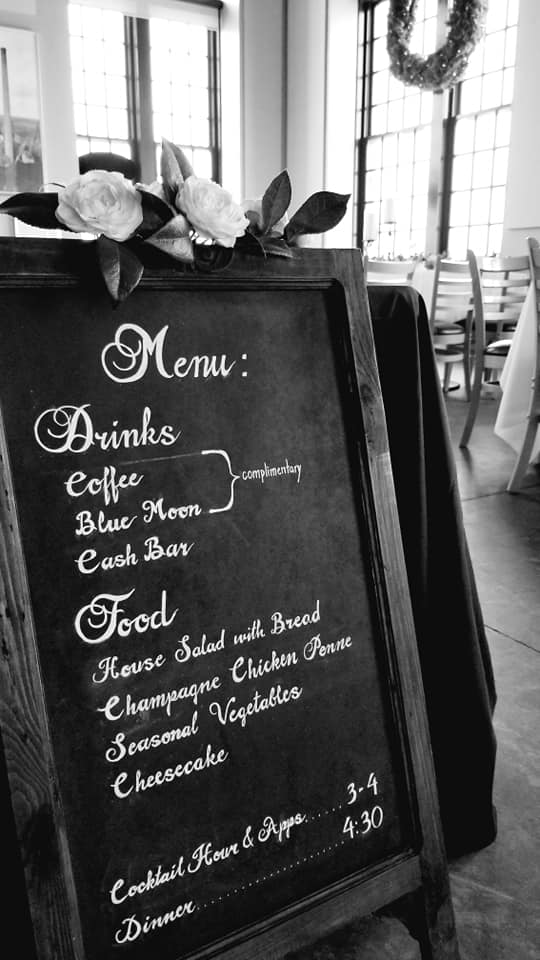 Menu:
Drinks
Coffee
complimentary
Blue Moon
Cash Bar
Food
House Salad with Bread
Champagne Chicken Penne
Seasonal Vegetables
Cheesecake
Cocktail Hour & Apps......3-4
Dinner....................4:30